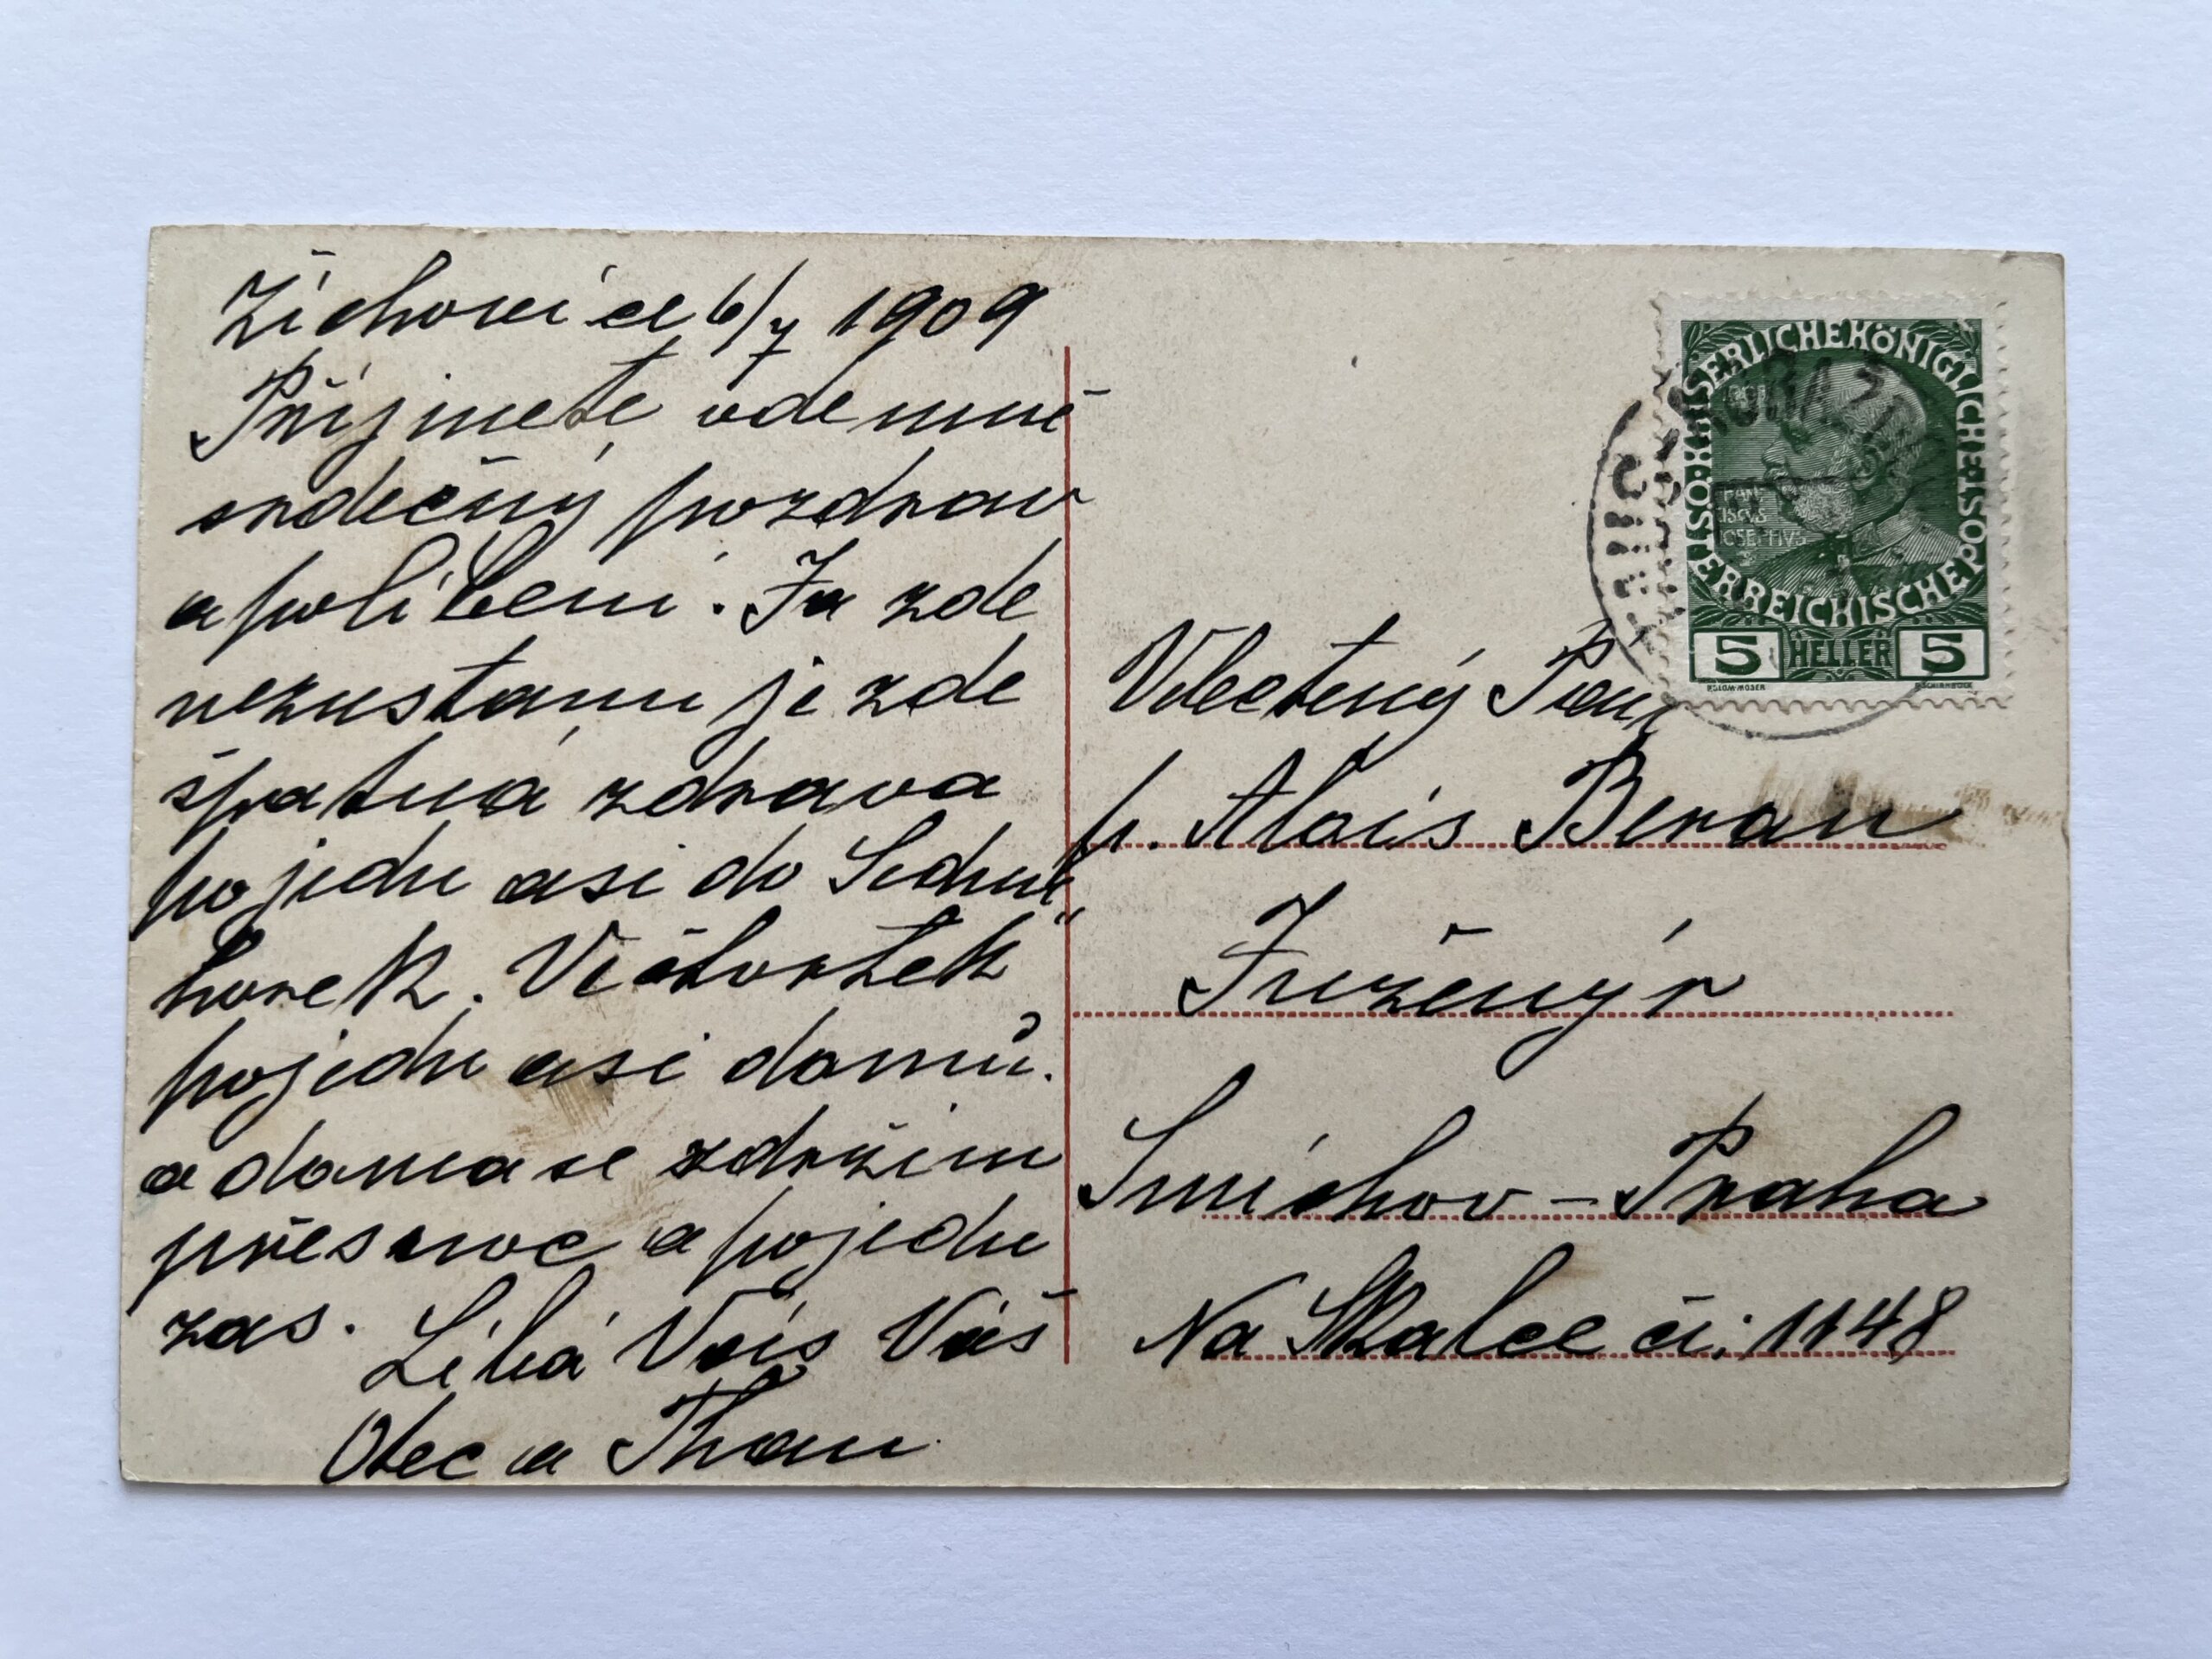 Žichovice 6/7 1909
Přijmete odemně
srdečný pozdrav
a políbení. Ja zde
nezustanu je zde
špatná zdrava
pojedu asi do Sedmi„
horek. Ve čtvrtek
pojedu asi domů.
a doma se zdržim
přes noc a pojedu
zas. Líbá Vás Váš
Otec a
Velectený Pan
p. Alois Beran
Inženýr
Smíchov - Praha
Na Skalce č: 1148
KAISERLICHEKÖNIGLICHE
ÖSTERREICHISCHE POST
5 HELLER 5